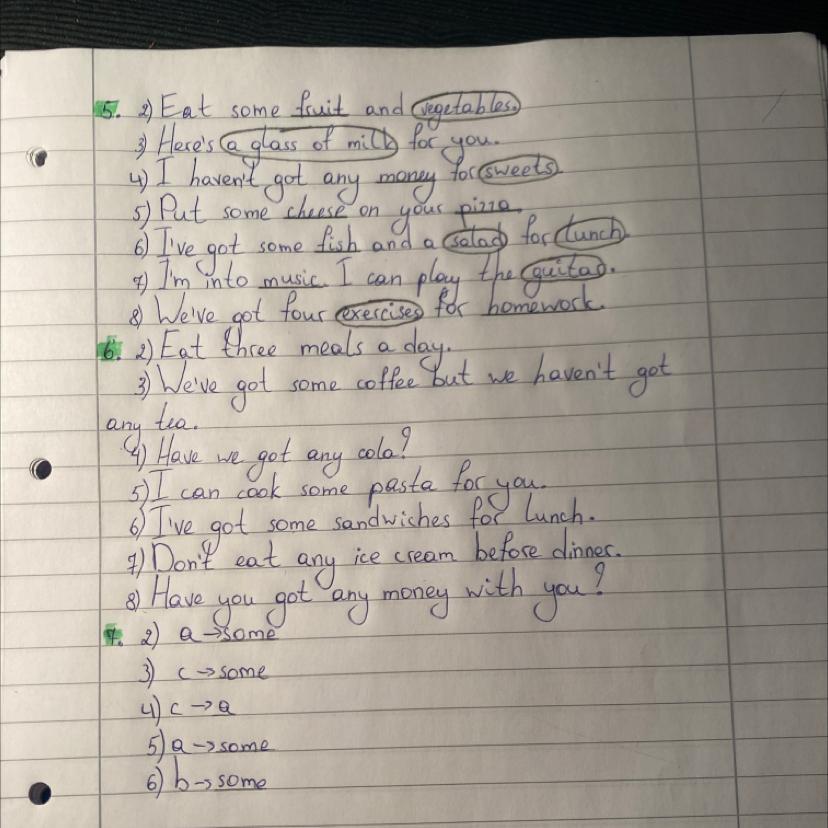 5. 2) Eat some fruit and vegetables.
3) Here's a glass of milk for you.
4) I haven't got any money for sweets.
5) Put some cheese on your pizza.
6) I've got some fish and a salad for lunch.
7) I'm into music. I can play the guitar.
8) We've got four exercises for homework.
6. 2) Eat three meals a day.
3) We've got some coffee but we haven't got
any tea.
4) Have we got any cola?
5) I can cook some pasta for you.
6) I've got some sandwiches for lunch.
7) Don't eat any ice cream before dinner.
8) Have you got any money with you?
7. 2) a → some
3) c → some
4) c → a
5) a → some
6) b → some